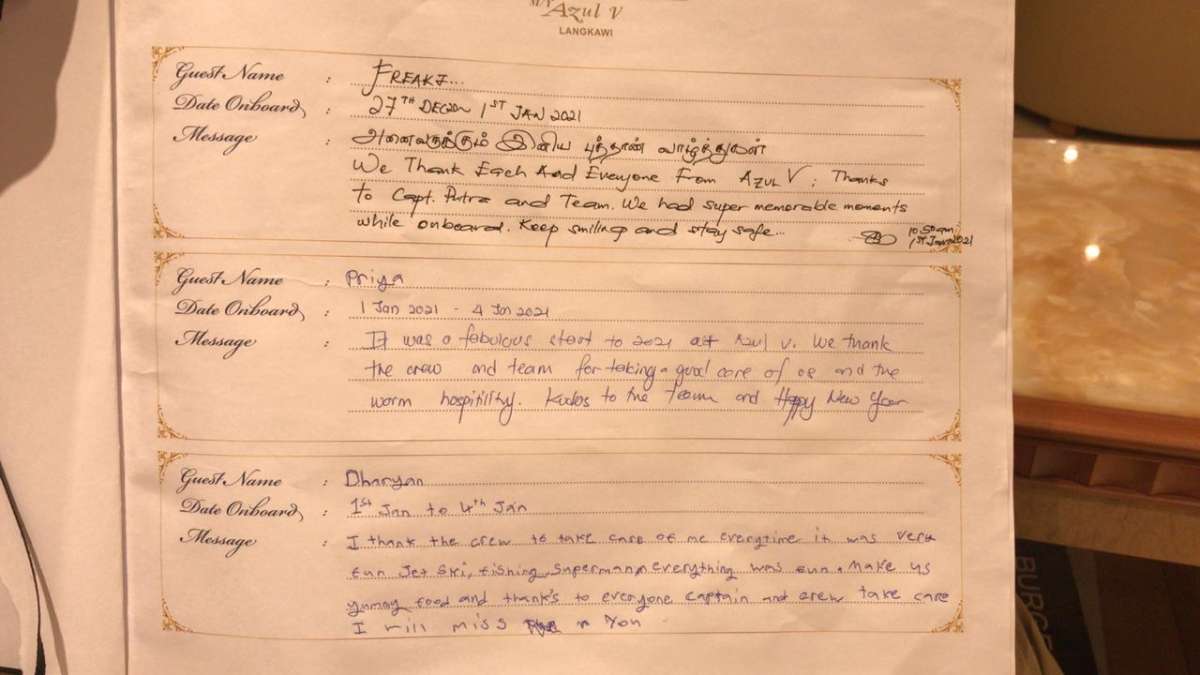 M/Y Azul V
LANGKAWI
Guest Name : FREAKZ...
Date Onboard : 27TH DEC 2020 1ST JAN 2021
Message : அனைவருக்கும் இனிய புத்தாண் வாழ்த்துகள்
We Thank Each And Everyone From AZUL V; Thanks
to Capt. Putra and Team. We had super memorable moments
while onboard. Keep smiling and stay safe... 10.50am
1ST Jan 2021
Guest Name : Priya
Date Onboard : 1 Jan 2021 - 4 Jan 2021
Message : It was a fabulous start to 2021 at Azul V. We thank
the crew and team for taking a good care of us and the
warm hospitility. Kudos to the team and Happy New Year
Guest Name : Dharyan
Date Onboard : 1st Jan to 4th Jan
Message : I thank the crew to take care of me everytime it was very
fun Jet Ski, fishing, superman, everything was fun. Make us
yummy food and thank's to everyone captain and crew take care
I will miss You